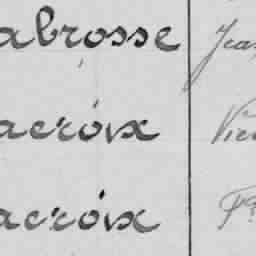 abrosse Jea
acroix Vic
acroix